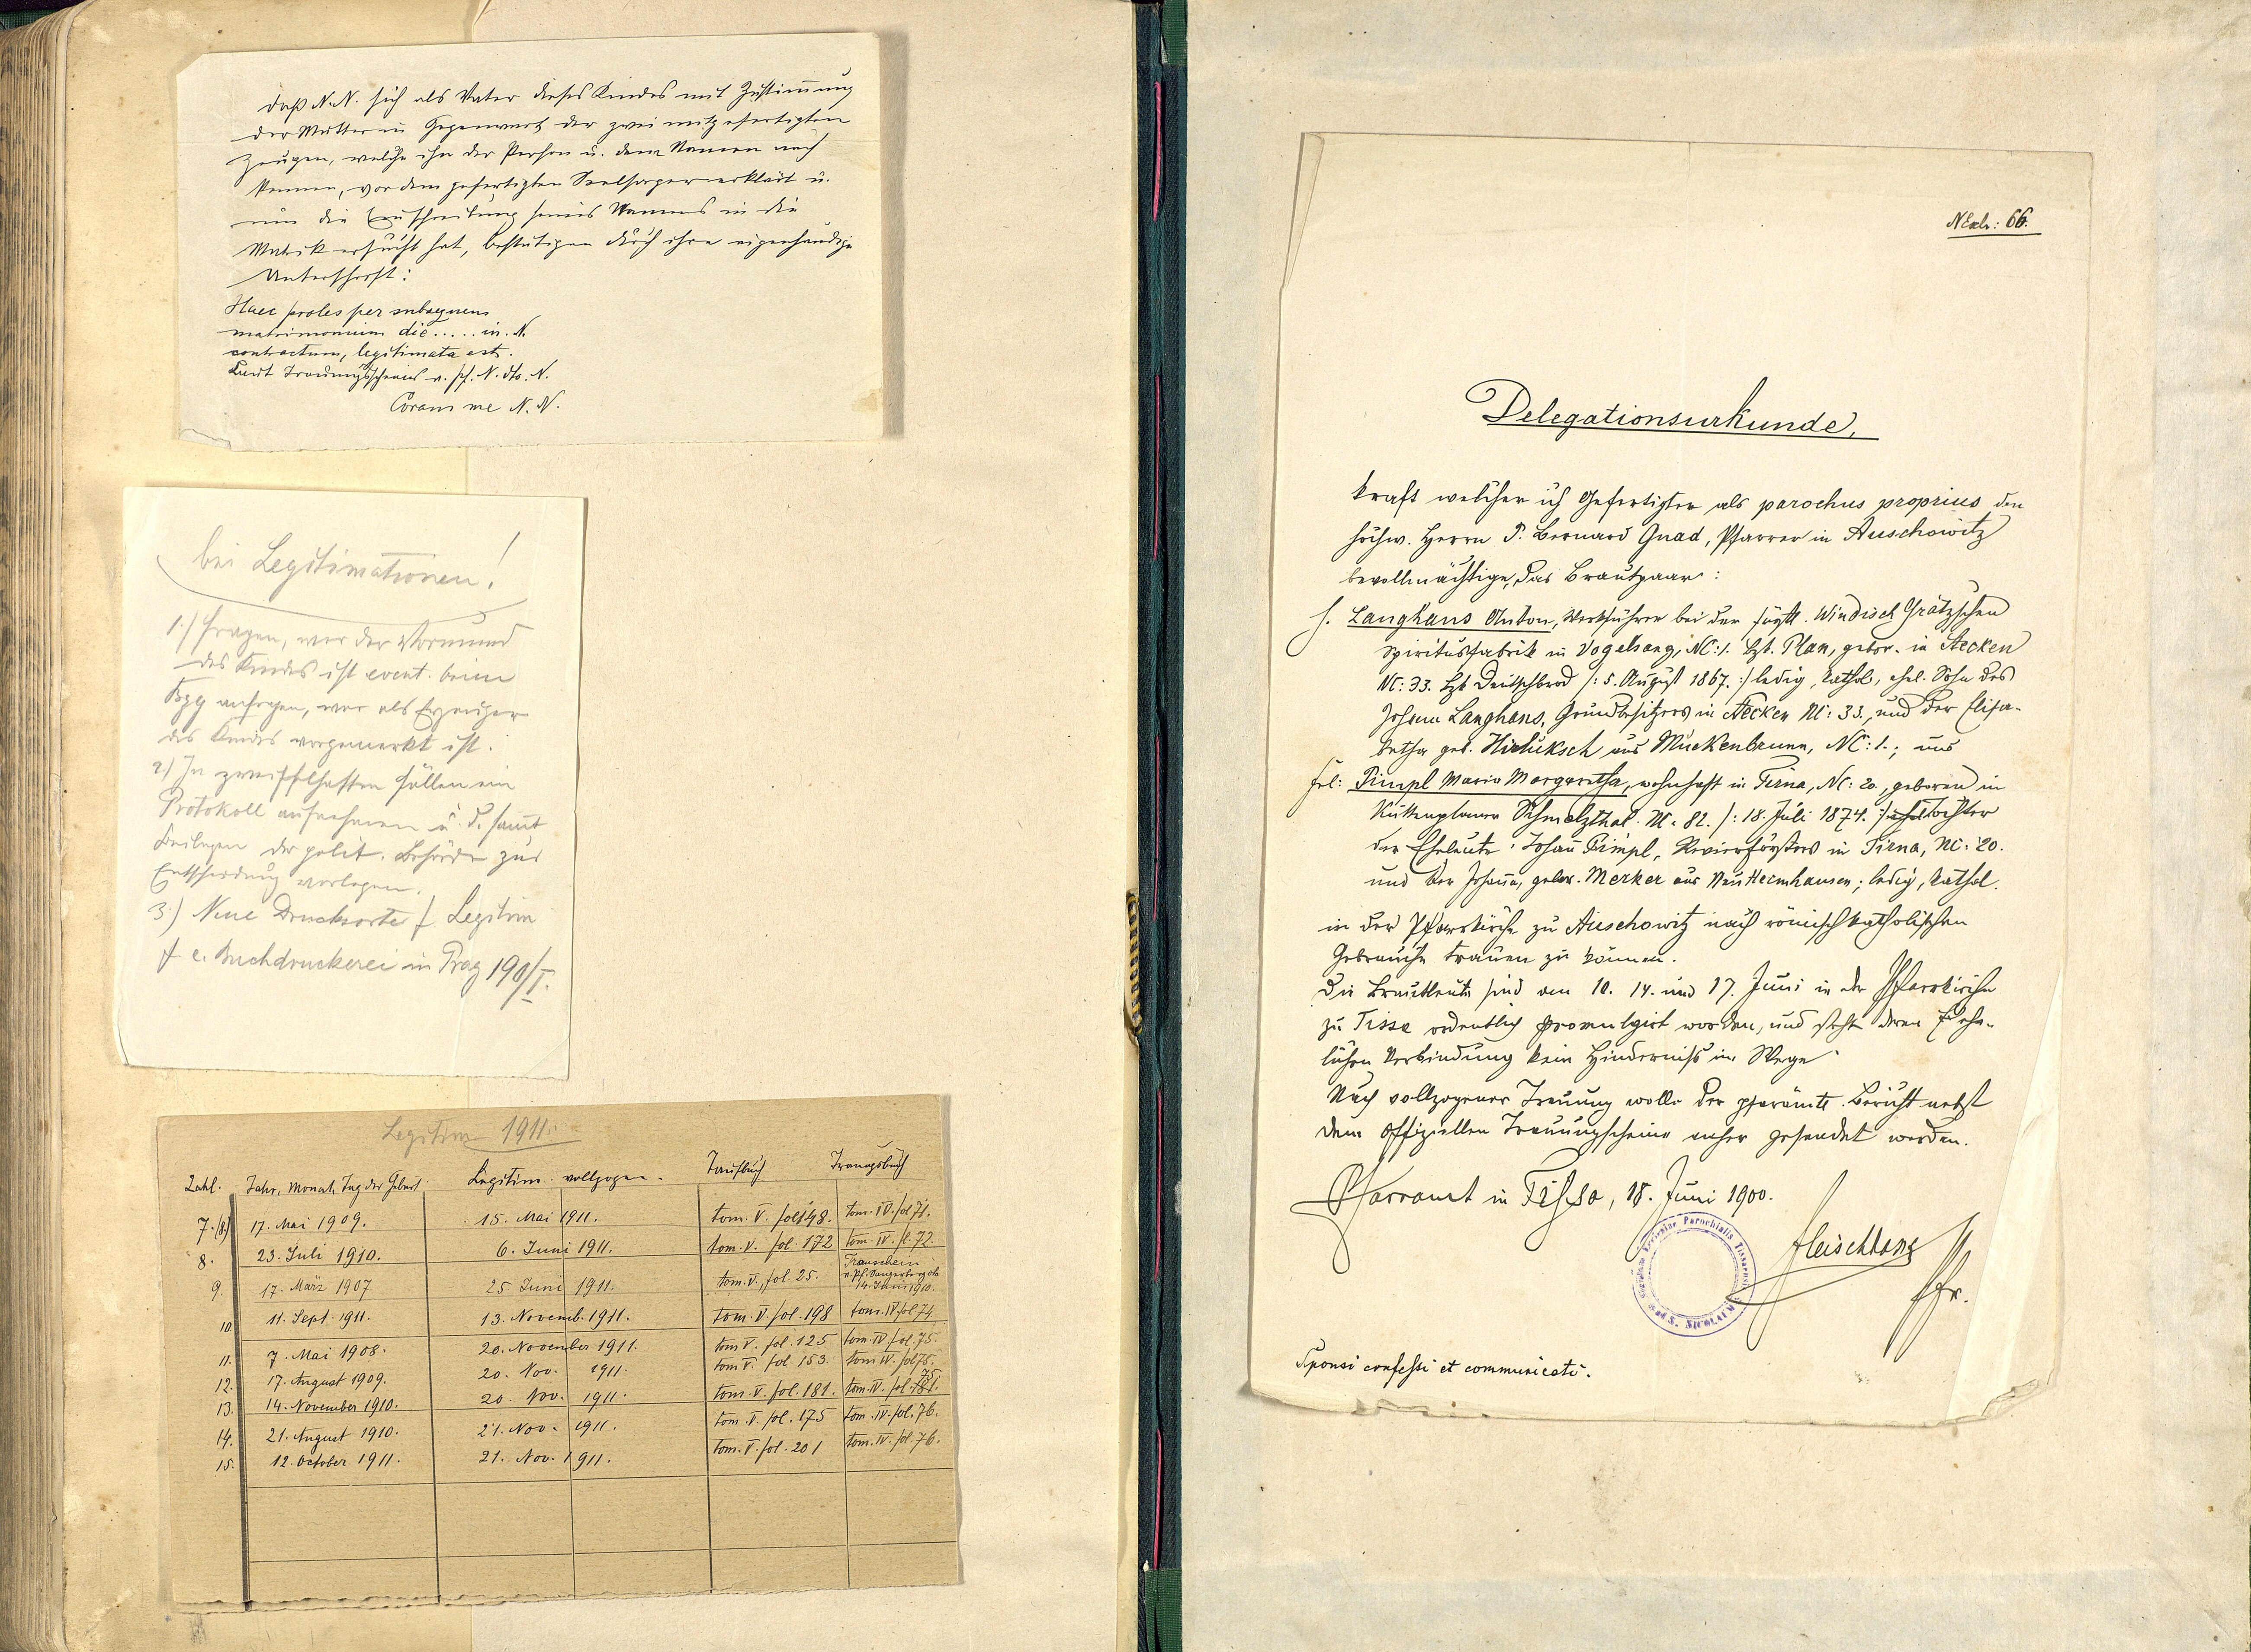 daß N.N. sich als Vater dieses Kindes mit Zustim̄ung
der Mutter in Gegenwart der zwei mitgefertigten
Zeugen, welche ihn der Person u. dem Namen nach
kennen, vor dem gefertigten Seelsorger erklärt u.
um die Einschreibung seines Namens in die
Matrik ersucht hat, bestätigen durch ihre eigenhändige
Unterschrift:
Haec proles per subsequens
matrimonium die ..... in N.
contractum, legitimata est.
Laut Trauungsscheines v. Pf. N. dto. N.
Coram me N. N.
bei Legitimationen!
1.) fragen, wer der Vormund
des Kindes ist event. beim
Bzg anfragen, wer als Erzeuger
des Kindes vorgemerkt ist.
2.) In zweifelhaften Fällen ein
Protokoll aufnehmen u. d. samt
Beilagen der polit. Behörde zur
Entscheidung vorlegen.
3.) Neue Drucksorte f Legitim
f. e. Buchdruckerei in Prag 190/I.
Legitim 1911.
Zahl. Jahr, Monat, Tag der Geburt. Legitim. vollzogen. Taufbuch Trauungsbuch
7.(8) 17. Mai 1909. 15. Mai 1911. tom. V. fol 148. tom. IV. fol 71.
8. 23. Juli 1910. 6. Juni 1911. tom. V. fol. 172 tom. IV. fl. 72.
9. 17. März 1907 25 Juni 1911. tom. V., fol. 25. Trauschein v. Pf. Sangerberg dto 14. Juni 1910.
10 11. Sept. 1911. 13. Novemb. 1911. tom. V. fol. 198 tom. IV fol 74
11. 7. Mai 1908. 20. November 1911. tom V. fol. 125 tom. IV. fol. 75.
12. 17. August 1909. 20. Nov. 1911. tom V. fol 153. tom IV. fol 75.
13. 14. November 1910. 20. Nov. 1911. tom. V. fol. 181. tom. IV. fol. 75.
14. 21. August 1910. 21. Nov. 1911. tom. V. fol. 175 tom. IV. fol. 76.
15. 12. October 1911. 21. Nov. 1911. tom. V. fol. 201 tom. IV. fol. 76.
NExh: 66.
Delegationsurkunde,
kraft welcher ich Gefertigter als parochus proprius den
hochw. Herrn P. Bernard Gnad, Pfarrer in Auschowitz
bevollmächtige, das Brautpaar:
H. Langhans Anton, Werkführer bei der fürstl. Windisch Grätzschen
Spiritusfabrik in Vogelsang, NC: 1. Bzt. Plan, gebor. in Stecken
NC: 33. Bzk Deutschbrod /: 5. August 1867. :/ ledig, kathol, ehel. Sohn des
Johann Langhans, Grundbesitzers in Stecken NC: 33., und der Elisa-
betha geb. aus Muckenbrunn, NC: 1.; und
Frl: Pimpl Maria Margaretha, wohnhaft in Tirna, NC: 20, geboren in
Kuttenplaner Schmelzthal. NC. 82. /: 18. Juli 1874. :/ ehel Tochter
der Eheleute Johan̄ Pimpl, Revierförsters in Tirna, NC: 20.
und der Johan̄a, gebor. Merker aus Neu Heimhausen; ledig, kathol.
in der Pfarrkirche zu Auschowitz nach römisch katholischem
Gebrauche trauen zu können.
Die Brautleute sind am 10. 14. und 17. Juni in der Pfarrkirche
zu Tissa ordentlich promulgirt worden, und steht deren ehe-
lichen Verbindung kein Hinderniß im Wege.
Nach vollzogener Trauung wolle der pfarämtl. Bericht nebst
dem offiziellen Trauungsscheine anher gesendet werden.
Pfarramt in Tissa, 18. Juni 1900.
Parochialis
ad S. NICOLAUM
Fleischhans
Pfr.
Sponsi confessi et communicati.